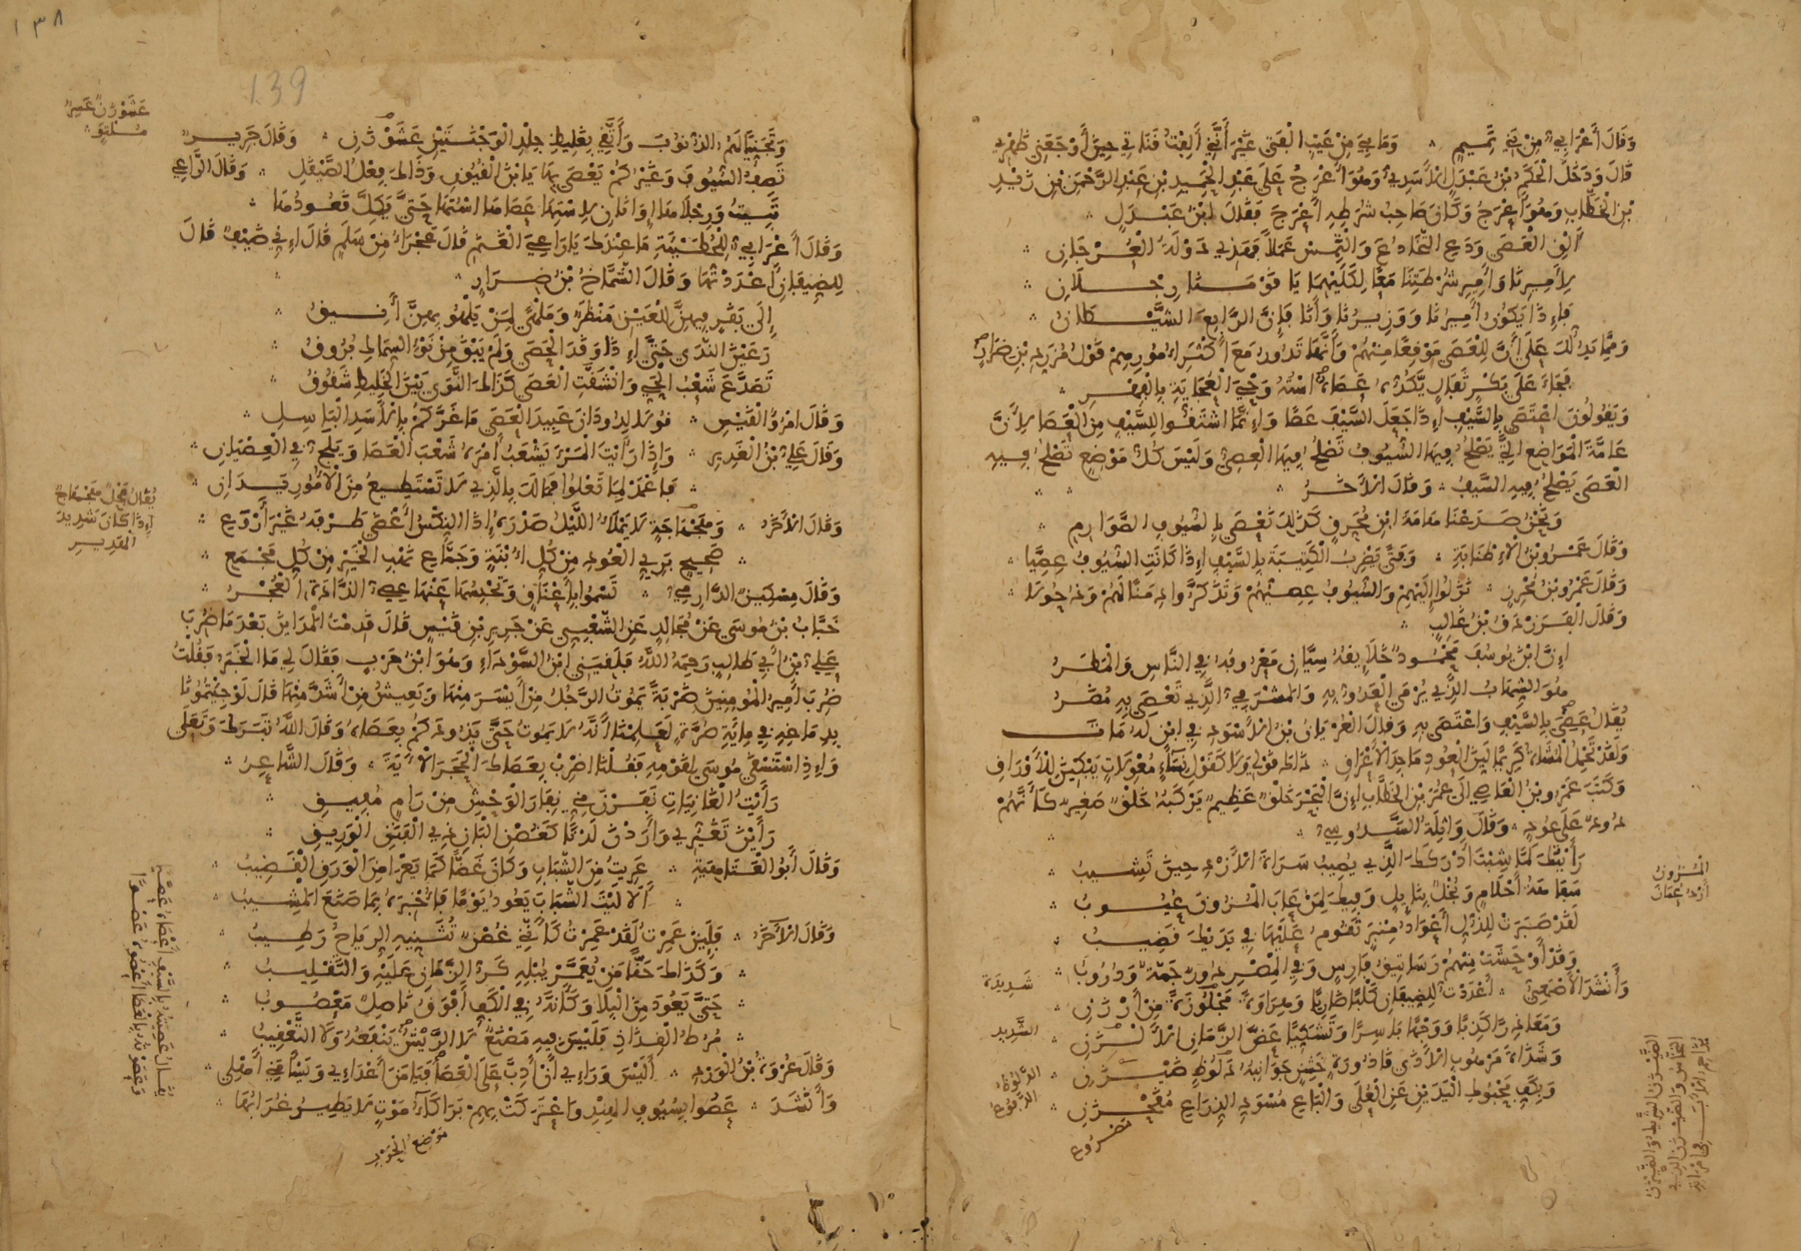 وَقَالَ أَعْرَابِيٌّ مِنْ بَنِي تَمِيمٍ ؞ وَمَا بِيَ مِنْ عَيْبِ الْفَتَى غَيْرَ أَنَّنِي أَلِفْتُ قَنَاتِي حِينَ أَوْجَعَنِي ظَهْرِي
قَالَ وَدَخَلَ الْحَكَمُ بْنُ عَبْدَلٍ الْأَسَدِيُّ وَهُوَ أَعْرَجُ عَلَى عَبْدِ الْحَمِيدِ بْنِ عَبْدِ الرَّحْمَنِ بْنِ زَيْدِ
بْنِ الْخَطَّابِ وَهُوَ أَعْرَجُ وَكَانَ صَاحِبُ شُرَطِهِ أَعْرَجَ فَقَالَ ابْنُ عَبْدَلٍ
أَلْقِ الْعَصَى وَدَعِ التَّخَادُعَ وَالْتَمِسْ عَمَلًا فَهَذِي دَوْلَةُ الْعُرْجَانِ
لِأَمِيرِنَا وَأَمِيرِ شُرْطَتِنَا مَعًا لِكِلَيْهِمَا يَا قَوْمَنَا رِجْلَانِ
فَإِذَا يَكُونُ أَمِيرُنَا وَوَزِيرُنَا وَأَنَا فَإِنَّ الرَّابِعَ الشَّيْطَانُ
وَمِمَّا يَدُلُّكَ عَلَى أَنَّ لِلْعَصَى مَوْقِعًا مِنْهُمْ وَأَنَّهَا تَدُورُ مَعَ أَكْثَرِ أُمُورِهِمْ قَوْلُ مُزَرِّدِ بْنِ ضِرَارٍ
فَجَاءَ عَلَى بَكْرٍ ثَفَالٍ يَكُدُّهُ عَصَاهُ اسْتُهُ وَجْيَ الْعُجَايَةِ بِالْفِهْرِ
وَيَقُولُونَ اعْتَصَى بِالسَّيْفِ إِذَا جَعَلَ السَّيْفَ عَصًا وَإِنَّمَا اشْتَقُّوا لِلسَّيْفِ مِنَ الْعَصَا لِأَنَّ
عَامَّةَ الْمَوَاضِعِ الَّتِي تَصْلُحُ فِيهَا السُّيُوفُ تَصْلُحُ فِيهَا الْعِصِيُّ وَلَيْسَ كُلُّ مَوْضِعٍ تَصْلُحُ فِيهِ
الْعَصَى يَصْلُحُ فِيهِ السَّيْفُ ؞ وَقَالَ الْآخَرُ
وَنَحْنُ صَدَعْنَا هَامَةَ ابْنِ مُحَرِّقٍ كَذَلِكَ نَعْصَى بِالسُّيُوفِ الصَّوَارِمِ
وَقَالَ عَمْرُو بْنُ الْإِطْنَابَةِ ؞ وَفَتًى يَضْرِبُ الْكَتِيبَةَ بِالسَّيْفِ إِذَا كَانَتِ السُّيُوفُ عِصِيَّا
وَقَالَ عَمْرُو بْنُ مُحْرِزٍ ؞ نَزَلُوا إِلَيْهِمْ وَالسُّيُوفُ عِصِيُّهُمْ وَتَذَكَّرُوا دِمَنًا لَهُمْ وَذُحُولَا
وَقَالَ الْفَرَزْدَقُ بْنُ غَالِبٍ
إِنَّ ابْنَ يُوسُفَ مَحْمُودٌ خَلَائِقُهُ سِيَّانِ مَعْرُوفُهُ فِي النَّاسِ وَالْمَطَرُ
هُوَ الشِّهَابُ الَّذِي يُرْمَى الْعَدُوُّ بِهِ وَالْمَشْرَفِيُّ الَّذِي تَعْصَى بِهِ مُضَرُ
يُقَالُ عَصِيَ بِالسَّيْفِ وَاعْتَصَى بِهِ وَقَالَ الْعُرْيَانُ بْنُ الْأَسْوَدِ فِي ابْنٍ لَهُ مَاتَ
وَلَقَدْ تَحْمِلُ الْمُشَاةُ كَرِيمًا لَيِّنَ الْعُودِ مَاجِدَ الْأَعْرَاقِ ؞ ذَاكَ قَوْلِي وَلَا كَقَوْلِ نِسَاءٍ مُعْوِلَاتٍ يَبْكِينَ بِالْأَوْرَاقِ
وَكَتَبَ عَمْرُو بْنُ الْعَاصِي إِلَى عُمَرَ بْنِ الْخَطَّابِ إِنَّ الْبَحْرَ خَلْقٌ عَظِيمٌ يَرْكَبُهُ خَلْقٌ صَغِيرٌ كَأَنَّهُمْ
دُودٌ عَلَى عُودٍ ؞ وَقَالَ وَاثِلَةُ السَّدُوسِيُّ
رَأَيْتُكَ لَمَّا شِبْتَ أَدْرَكَكَ الَّذِي يُصِيبُ سَرَاةَ الْأَزْدِ حِينَ تَشِيبُ
سَفَاهَةُ أَحْلَامٍ وَبُخْلٌ بِنَائِلٍ وَفِيكَ لِمَنْ عَابَ الْمَزُونَ عُيُوبُ
لَقَدْ صَبَرَتْ لِلذُّلِّ أَعْوَادُ مِنْبَرٍ تَقُومُ عَلَيْهَا فِي يَدَيْكَ قَضِيبُ
وَقَدْ أَوْحَشَتْ مِنْهُمْ رَسَاتِيقُ فَارِسٍ وَفِي الْمِصْرِ دُورٌ جَمَّةٌ وَدُرُوبُ
وَأَنْشَدَ الْأَصْمَعِيُّ ؞ أَعْدَدْتُ لِلضِّيفَانِ كَلْبًا ضَارِيًا وَهِرَاوَةً مَجْلُوزَةً مِنْ أَرْزَنِ
وَمَعَاذِرًا كَذِبًا وَوَجْهًا بَاسِرًا وَتَشَكِّيًا عَضَّ الزَّمَانِ الْأَلْزَنِ
وَشَذَاةَ مَرْهُوبِ الْأَذَى قَاذُورَةٍ خَشِنٍ جَوَانِبُهُ دَلُوظٍ ضَيْزَنِ
وَبِكَفِّ مَحْبُوكِ الْيَدَيْنِ عَنِ الْعُلَى وَالْبَاعِ مُسْوَدِّ الذِّرَاعِ مُقَحْزَنِ
مَصْرُوعٍ
الْمَزُونُ
أَزْدُ عُمَانَ
شَدِيدَةٌ
الشَّدِيدُ
الدَّفُوعُ
١٣٨
139
وَتَجَنِّيًا لَهُمُ الذُّنُوبَ وَأَتَّقِي بِغَلِيظِ جِلْدِ الْوَجْنَتَيْنِ عَشَوْزَنِ ؞ وَقَالَ جَرِيرٌ
تَصِفُ السُّيُوفَ وَغَيْرُكُمْ يَعْصَى بِهَا يَا ابْنَ الْقُيُونِ وَذَاكَ فِعْلُ الصَّيْقَلِ ؞ وَقَالَ الرَّاعِي
تَبِيتُ وَرِجْلَاهَا إِوَانَانِ لِاسْتِهَا عَصَاهَا اسْتُهَا حَتَّى يَكِلَّ قَعُودُهَا
وَقَالَ أَعْرَابِيٌّ لِلْحُطَيْئَةِ مَا عِنْدَكَ يَا رَاعِيَ الْغَنَمِ قَالَ عَجْرَاءُ مِنْ سَلَمٍ قَالَ إِنِّي ضَيْفٌ قَالَ
لِلضِّيفَانِ أَعْدَدْتُهَا وَقَالَ الشَّمَّاخُ بْنُ ضِرَارٍ
إِلَى بَقَرٍ فِيهِنَّ لِلْعَيْنِ مَنْظَرٌ وَمَلْهًى لِمَنْ يَلْهُو بِهِنَّ أَنِيقُ
رَعَيْنَ النَّدَى حَتَّى إِذَا وَقَدَ الْحَصَى وَلَمْ يَبْقَ مِنْ نَوْءِ السِّمَاكِ بُرُوقُ
تَصَدَّعَ شَعْبُ الْحَيِّ وَانْشَقَّتِ الْعَصَى كَذَاكَ النَّوَى بَيْنَ الْخَلِيطِ شَقُوقُ
وَقَالَ امْرُؤُ الْقَيْسِ ؞ قُولَا لِدُودَانَ عَبِيدِ الْعَصَى مَا غَرَّكُمْ بِالْأَسَدِ الْبَاسِلِ
وَقَالَ عَلِيُّ بْنُ الْغَدِيرِ ؞ وَإِذَا رَأَيْتَ الْمَرْءَ يَشْعَبُ أَمْرَهُ شَعْبَ الْعَصَا وَيَلَجُّ فِي الْعِصْيَانِ
فَاعْمَدْ لِمَا تَعْلُوا فَمَا لَكَ بِالَّذِي لَا تَسْتَطِيعُ مِنَ الْأُمُورِ يَدَانِ
وَقَالَ الْآخَرُ ؞ وَهَجْهَاجَةٍ لَا يَمْلَأُ اللَّيْلُ صَدْرَهُ إِذَا النِّكْسُ أَغْضَى طَرْفَهُ غَيْرَ أَرْوَعِ
صَحِيحٍ بَرِيِّ الْعُودِ مِنْ كُلِّ أُبْنَةٍ وَجَمَّاعِ نَهْبِ الْخَيْرِ مِنْ كُلِّ مَجْمَعِ
وَقَالَ مِسْكِينٌ الدَّارِمِيُّ ؞ تَسْمُوا بِأَعْنَاقٍ وَتَحْبِسُهَا عَنْهَا عِصِيُّ الذَّادَةِ الْعُجْرُ
حَبَّابُ بْنُ مُوسَى عَنْ مُجَالِدٍ عَنِ الشَّعْبِيِّ عَنْ جَرِيرِ بْنِ قَيْسٍ قَالَ قَدِمْتُ الْمَدَائِنَ بَعْدَ مَا ضُرِبَ
عَلِيُّ بْنُ أَبِي طَالِبٍ رَحِمَهُ اللَّهُ فَلَقِيَنِي ابْنُ السَّوْدَاءِ وَهُوَ ابْنُ حَرْبٍ فَقَالَ لِي مَا الْخَبَرُ فَقُلْتُ
ضُرِبَ أَمِيرُ الْمُومِنِينَ ضَرْبَةً يَمُوتُ الرَّجُلُ مِنْ أَيْسَرَ مِنْهَا وَيَعِيشُ مِنْ أَشَدَّ مِنْهَا قَالَ لَوْ جِئْتُمُونَا
بِدِمَاغِهِ فِي مِائَةِ صُرَّةٍ لَعَلِمْنَا أَنَّهُ لَا يَمُوتُ حَتَّى يَذُودَكُمْ بِعَصَاهُ وَقَالَ اللَّهُ تَبَرَكَ وَتَعَلَى
وَإِذِ اسْتَسْقَى مُوسَى لِقَوْمِهِ فَقُلْنَا اضْرِبْ بِعَصَاكَ الْحَجَرَ الْآيَةَ ؞ وَقَالَ الشَّاعِرُ
رَأَيْتُ الْغَانِيَاتِ نَفَرْنَ مِنِّي نِفَارَ الْوَحْشِ مِنْ رَامٍ مُفِيقِ
رَأَيْنَ تَغَيُّرِي وَأَرَدْنَ لَدْنًا كَغُصْنِ الْبَانِ ذِي الْفَنَنِ الْوَرِيقِ
وَقَالَ أَبُو الْعَتَاهِيَةِ ؞ عَرِيتُ مِنَ الشَّبَابِ وَكَانَ غَضًّا كَمَا يَعْرَا مِنَ الْوَرَقِ الْقَضِيبُ
أَلَا لَيْتَ الشَّبَابَ يَعُودُ يَوْمًا فَأُخْبِرَهُ بِمَا صَنَعَ الْمَشِيبُ
وَقَالَ الْآخَرُ ؞ فَلَئِنْ عَمِرْتُ لَقَدْ عَمِرْتُ كَأَنَّنِي غُصْنٌ تُثَنِّيهِ الرِّيَاحُ رَطِيبُ
وَكَذَاكَ حَقًّا مَنْ يُعَمَّرْ يُبْلِهِ كَرُّ الزَّمَانِ عَلَيْهِ وَالتَّقْلِيبُ
حَتَّى يَعُودَ مِنَ الْبِلَا وَكَأَنَّهُ فِي الْكَفِّ أَفْوَقُ نَاصِلٌ مَعْصُوبُ
مُرُطُ الْقِذَاذِ فَلَيْسَ فِيهِ مَصْنَعٌ لَا الرِّيشُ يَنْفَعُهُ وَلَا التَّعْقِيبُ
وَقَالَ عُرْوَةُ بْنُ الْوَرْدِ ؞ أَلَيْسَ وَرَاءِي أَنْ أَدِبَّ عَلَى الْعَصَا فَيَامَنَ أَعْدَاءِي وَيَسْأَمَنِي أَهْلِي
وَأَنْشَدَ ؞ عَصُوا بِسُيُوفِ الْهِنْدِ وَاعْتَرَكَتْ بِهِمْ بَرَاكَاءُ مَوْتٍ لَا يَطِيرُ غُرَابُهَا
مَوْضِعُ الْحَرْبِ
عَشَوْزَنٌ عَسِرٌ
مُلْتَوٍ
يُقَالُ فَحْلٌ هَجْهَاجٌ
إِذَا كَانَ شَدِيدَ
الْهَدِيرِ
يُقَالُ عَصِيتُ بِالسَّيْفِ أَعْصَاهُ عَصًى
وَعَصَوْتُهُ بِالْعَصَا أَعْصُوهُ عَصْوًا